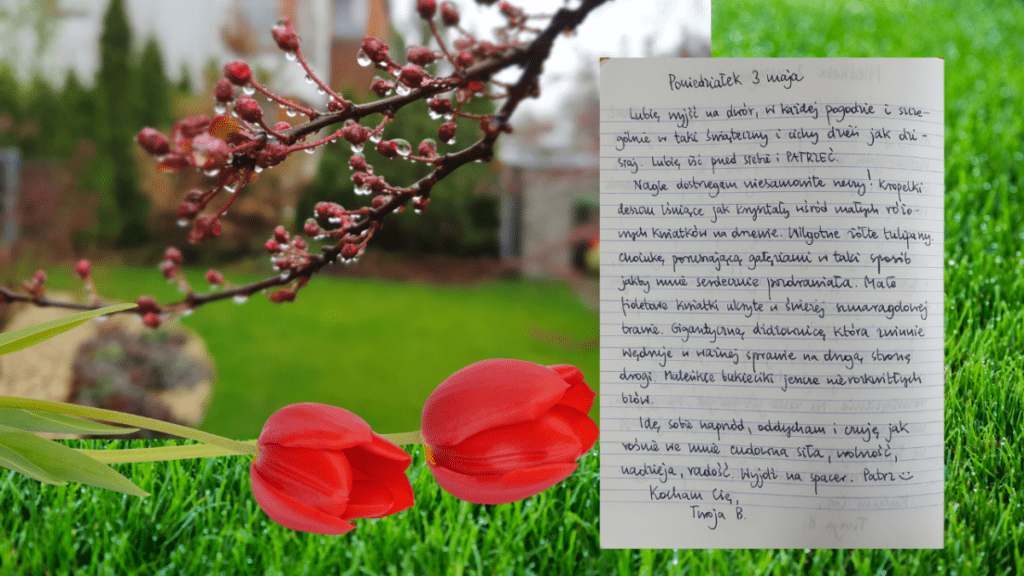 Poniedziałek 3 maja
Lubię wyjść na dwór, w każdej pogodzie i szcze-
gólnie w taki świąteczny i cichy dzień jak dzi-
siaj. Lubię iść przed siebie i PATRZEĆ.
Nagle dostrzegam niesamowite rzeczy! Kropelki
deszczu lśniące jak kryształy wśród małych różo-
wych kwiatków na drzewie. Wilgotne żółte tulipany.
Choinkę, poruszającą gałęziami w taki sposób
jakby mnie serdecznie pozdrawiała. Małe
fioletowe kwiatki ukryte w świeżej szmaragdowej
trawie. Gigantyczną dżdżownicę, która zwinnie
wędruje w ważnej sprawie na drugą stronę
drogi. Maleńkie bukieciki jeszcze nierozkwitłych
bzów.
Idę sobie naprzód, oddycham i czuję jak
rośnie we mnie cudowna siła, wolność,
nadzieja, radość. Wyjdź na spacer. Patrz
Kocham Cię,
Twoja B.